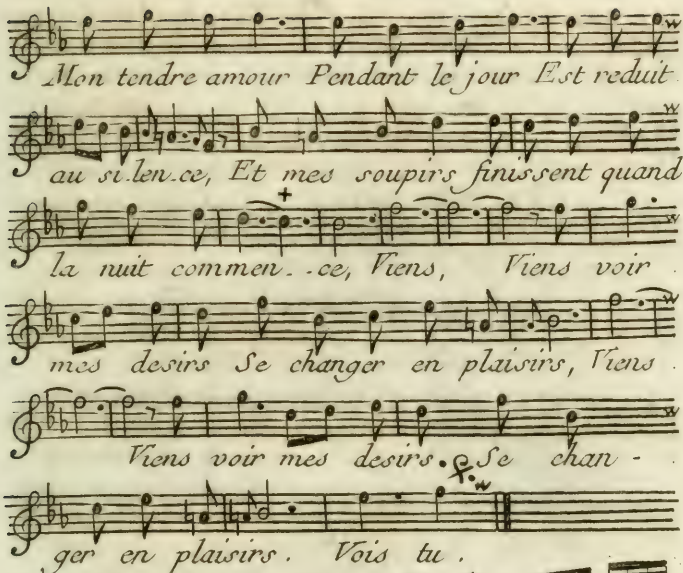 Mon tendre amour Pendant le jour Est reduit
au si-len-ce, Et mes soupirs finissent quand
la nuit commen--ce, Viens, Viens voir
mes desirs Se changer en plaisirs, Viens
Viens voir mes desirs. Se chan-
ger en plaisirs. Vois tu.